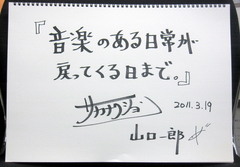 『音楽のある日常が
戻ってくる日まで。』
サカナクション 2011.3.19
山口一郎